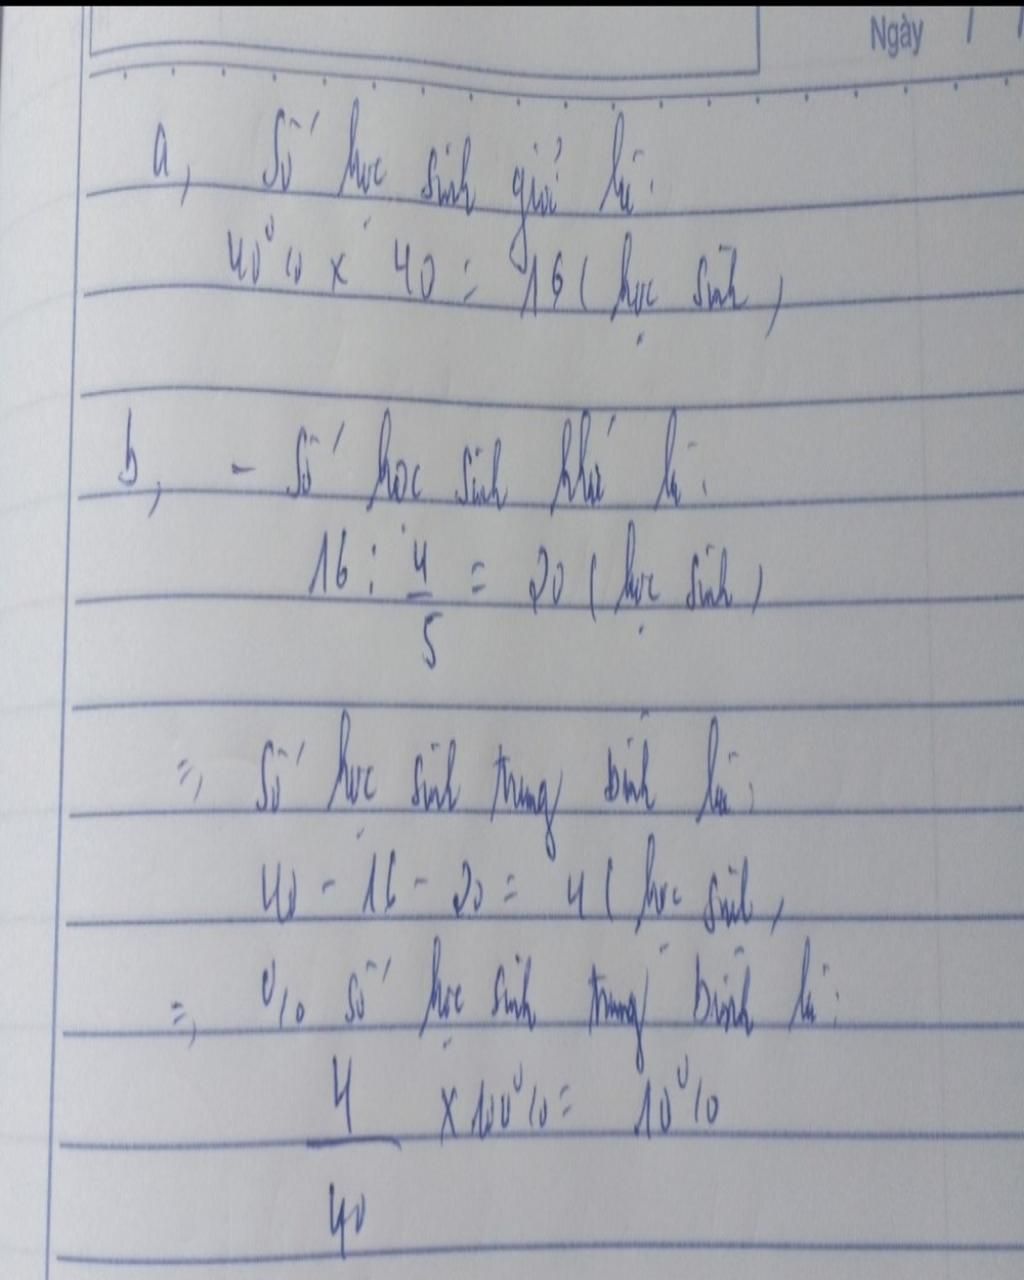 Ngày / /
a, Số học sinh giỏi là:
40% x 40 = 16 ( học sinh )
b, - Số học sinh khá là:
16 : 4/5 = 20 ( học sinh )
=> Số học sinh trung bình là:
40 - 16 - 20 = 4 ( học sinh )
=> % số học sinh trung bình là:
4/40 x 100% = 10%